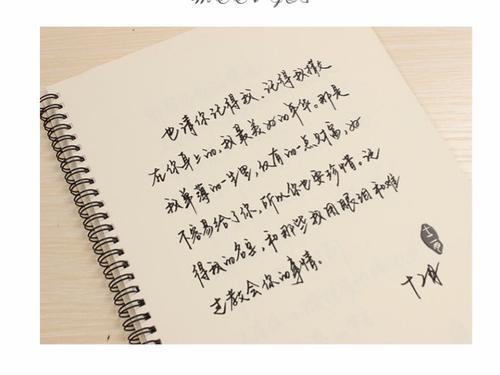 也请你记得我、记得我撒
在你身上的，我最美好的年华。那是
我单薄的一生里，仅有的一点财富，好
不容易给了你，所以你也要珍惜。记
得我的名字，和那些我用眼泪和难
过教会你的事情。
十二月